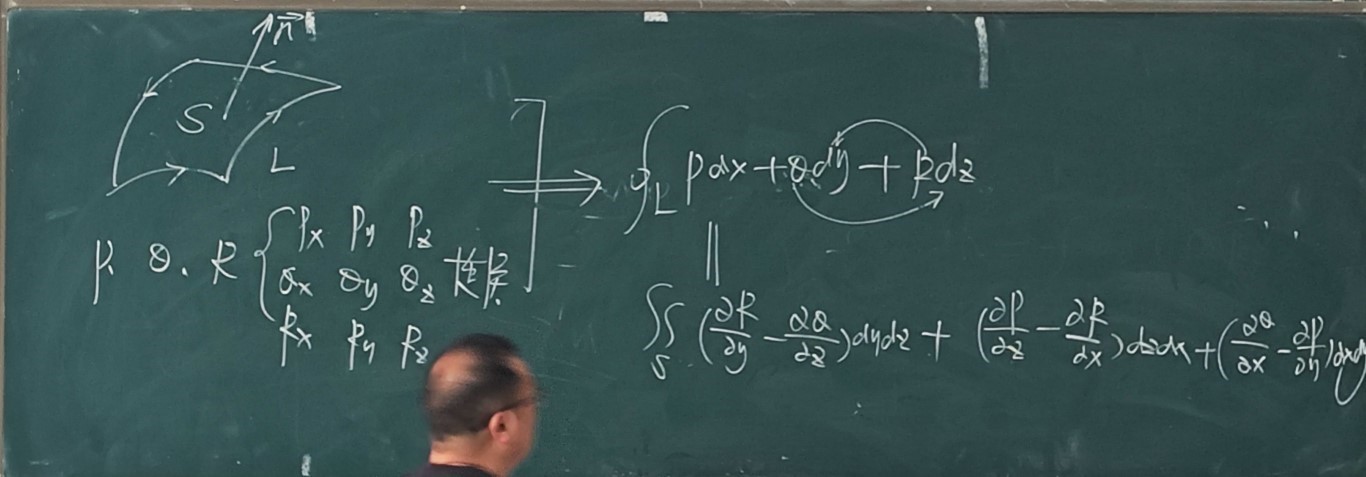 n⃗
S
L
P. Q. R { Px Py Pz
Qx Qy Qz 连续.
Rx Ry Rz
⟹ ∮_L Pdx + Qdy + Rdz
||
∬_S (∂R/∂y − ∂Q/∂z)dydz + (∂P/∂z − ∂R/∂x)dzdx + (∂Q/∂x − ∂P/∂y)dxdy